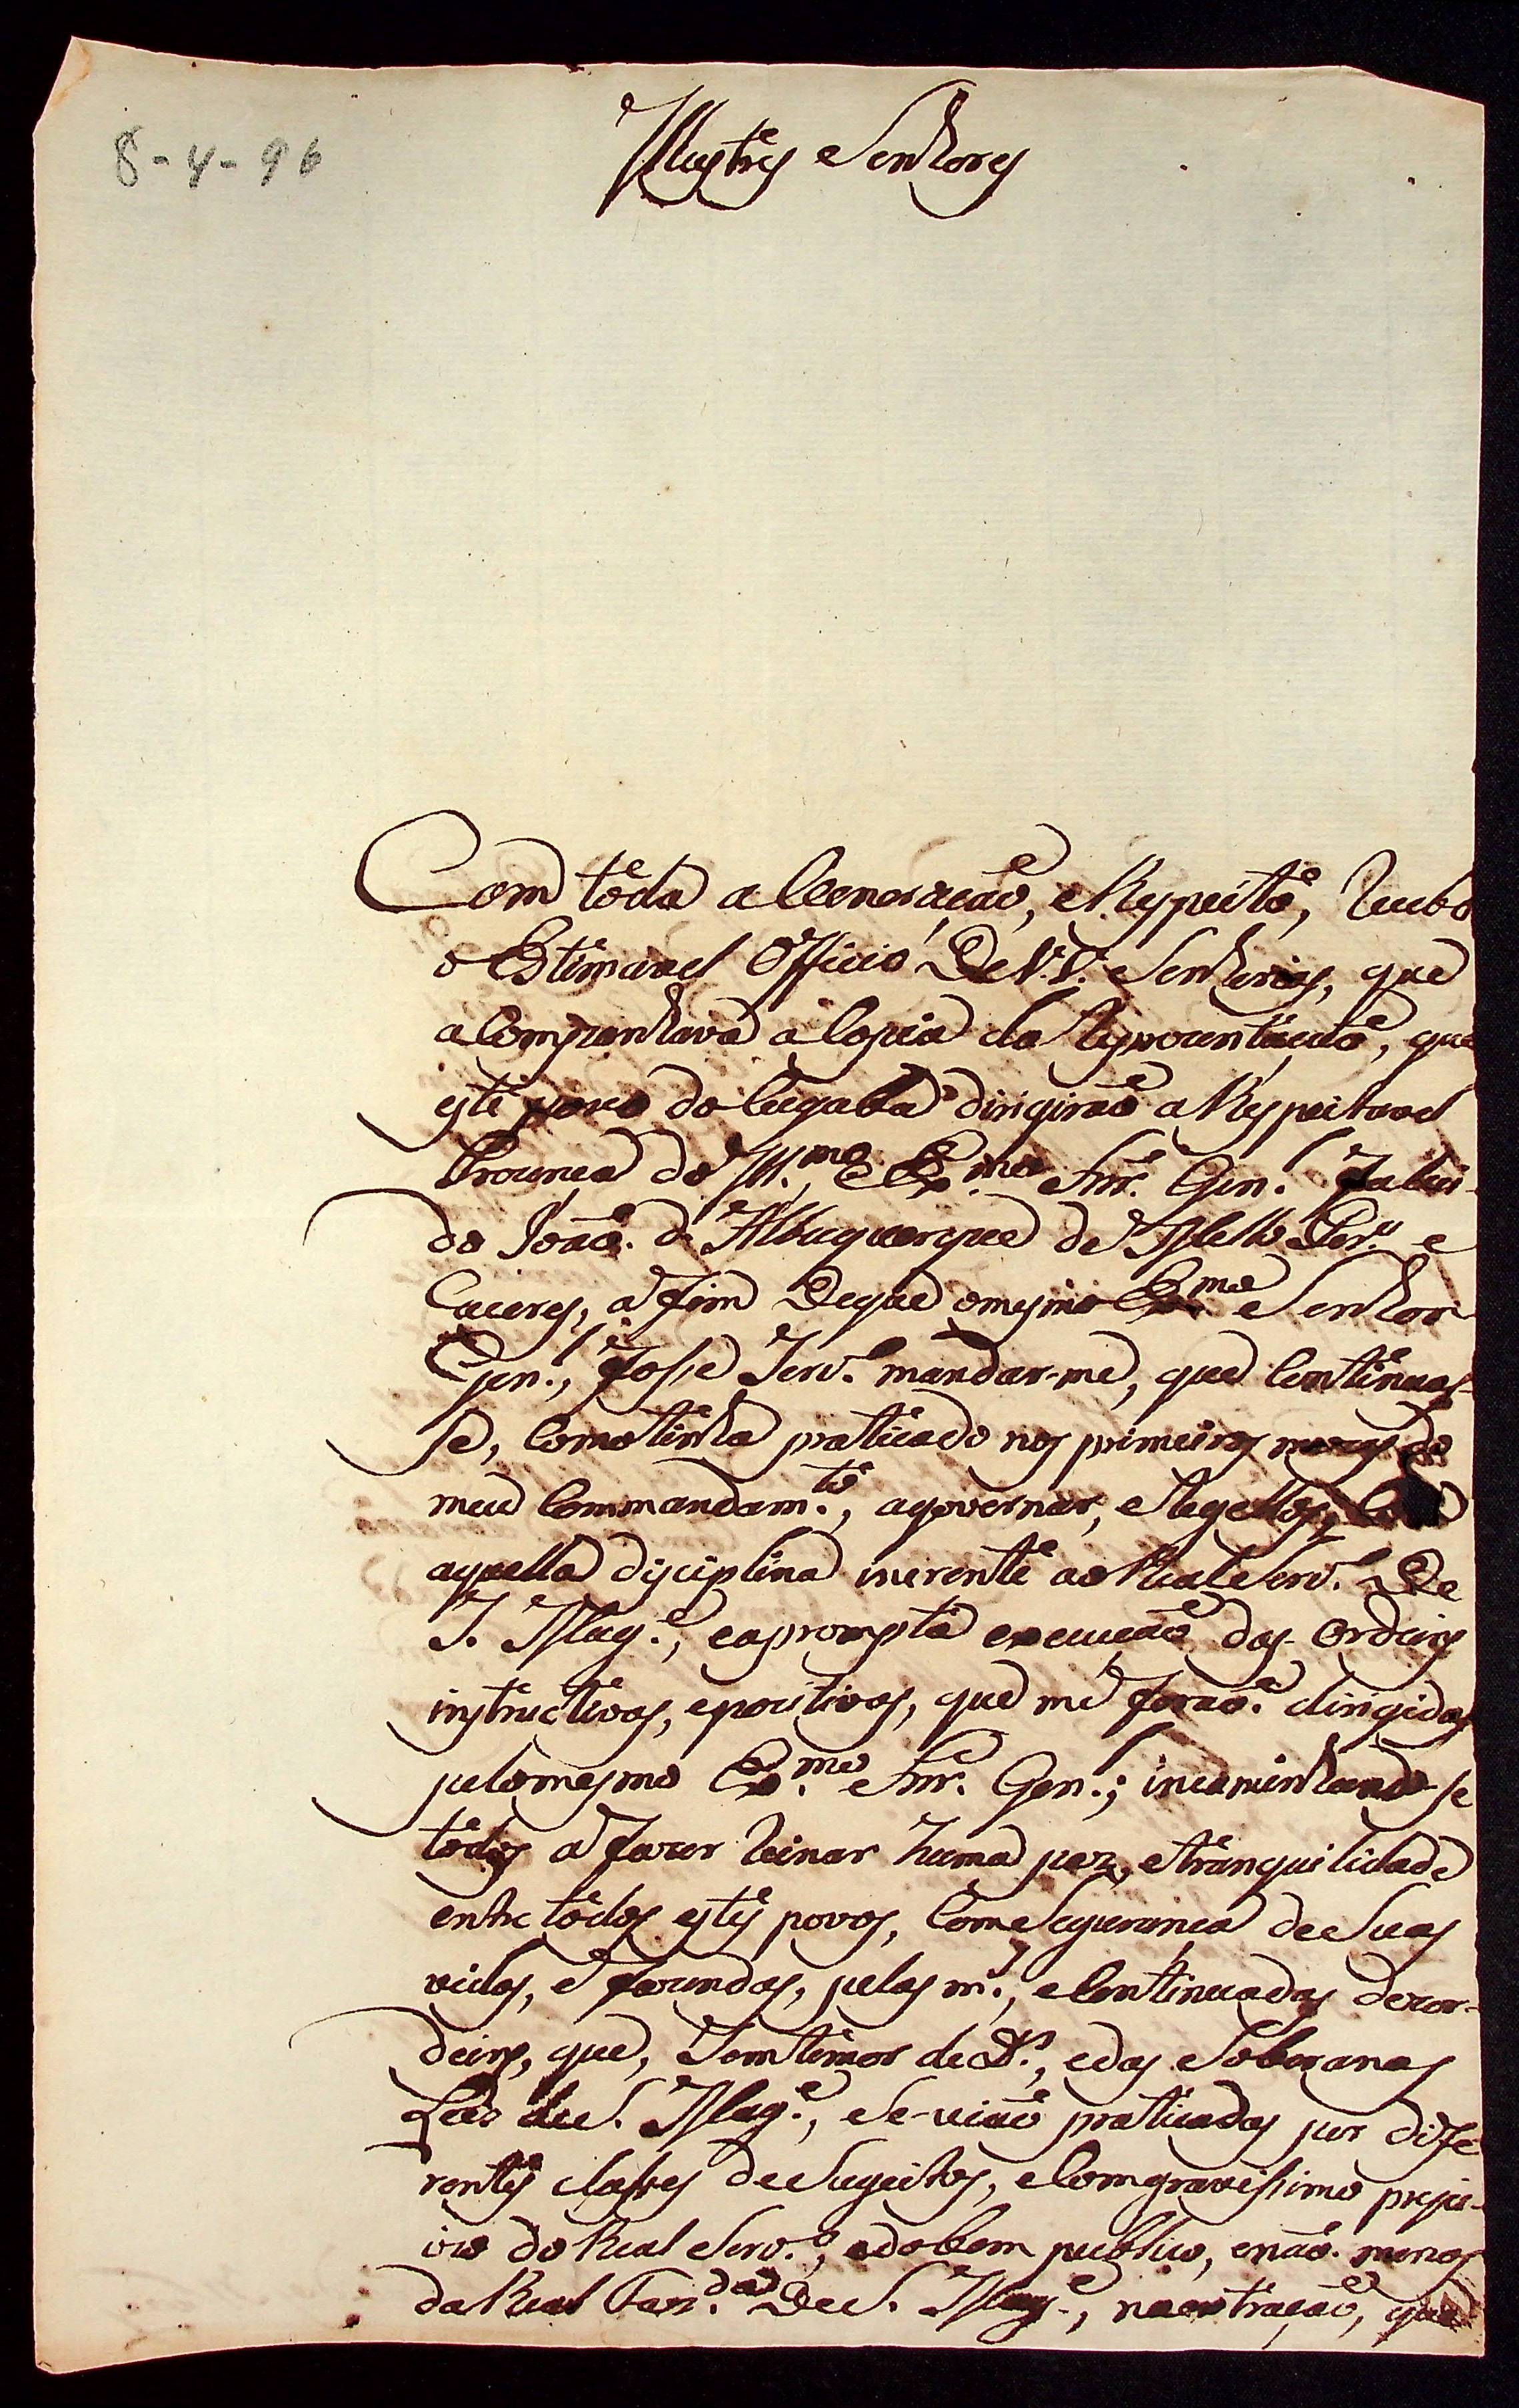 8-4-96
Illustres Senhores
Com tôda a Veneração, e Respeito, recebo
o Estimavel Officio De V.V. Senhorias, que
a Companhava a Copia da Reprezentação, que
este povo do Cuyabá dirigirão a Respeitavel
Prezença do Ill.mo e Ex.mo Snr. Gen.l
do João. d'Albuquerque de Mello Per.a e
Caceres, a fim Deque o mesmo Ex.mo Senhor
Gen.l, fosse Serv.o mandar-me, que Continuas-
se, Como tinha praticado nos primeiros mezes do
meu Commandam.to, agovernar, e Regellos,
aquella disciplina inerente ao Real Serv.o De
S. Mag.e, eaprompta execução das Ordeins
instructivas, epozitivas, que me forão. dirigidas
pelomesmo Ex.mo Snr. Gen.l; incaminhando-se
tôdas a fazer Reinar huma paz, e tranquilidade
entre tôdos estes povos, Com eSegurança de Suas
vidas, e fazendas, pelas m.s, e Continuadas dezor-
deins, que, Sem temor de D.s, edas Soberanas
Leis de S. Mag.e, Se-vião praticadas por dife-
rentes classes de Sugeitos, e Com gravissimo prejui-
zo do Real Serv.o, e do bem publico, enão. menos
da Real Faz.da De S. Mag.e, na extração, que